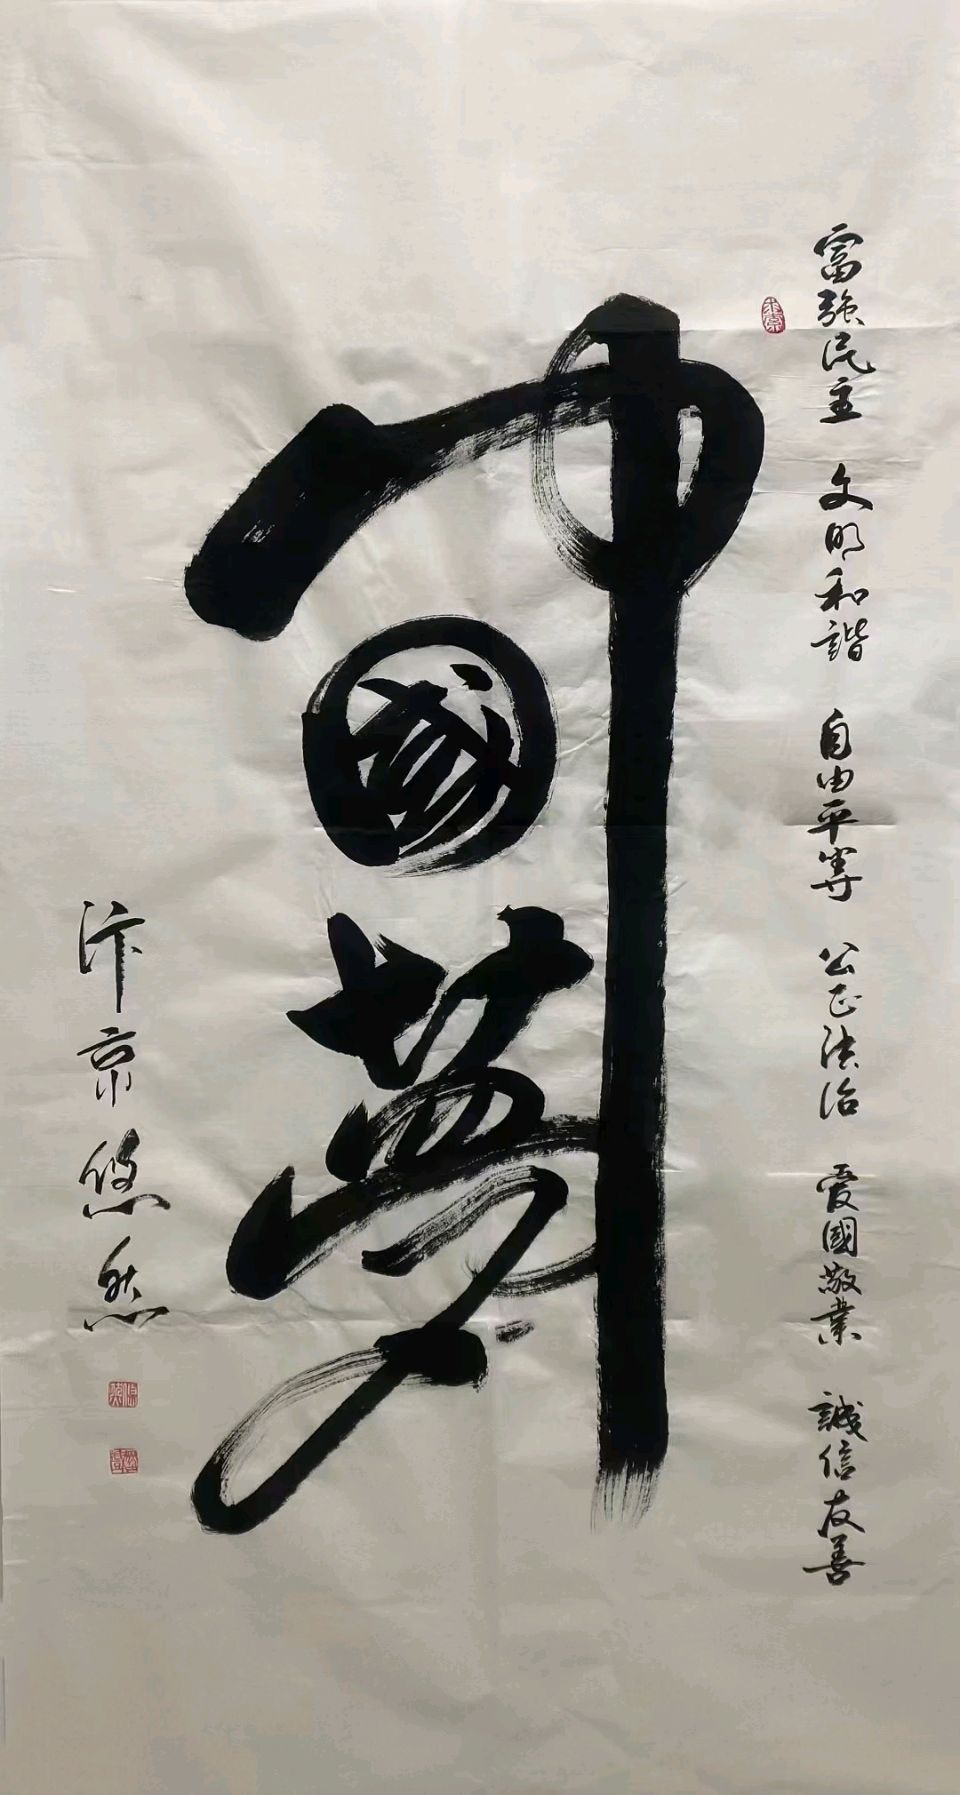 富強民主 文明和諧 自由平等 公正法治 愛國敬業 誠信友善
中國夢
汴京悠然